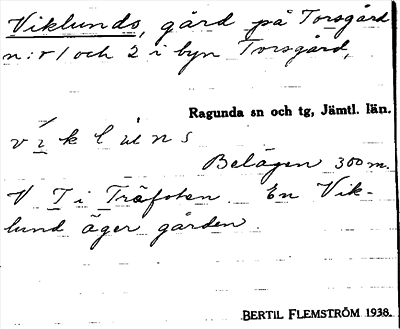 Viklunds, gård på Torsgård
n:r 1 och 2 i byn Torsgård,
Ragunda sn och tg, Jämtl. län.
víkluns
Belägen 300 m.
V T i Träfoten. En Vik-
lund äger gården.
BERTIL FLEMSTRÖM 1938.